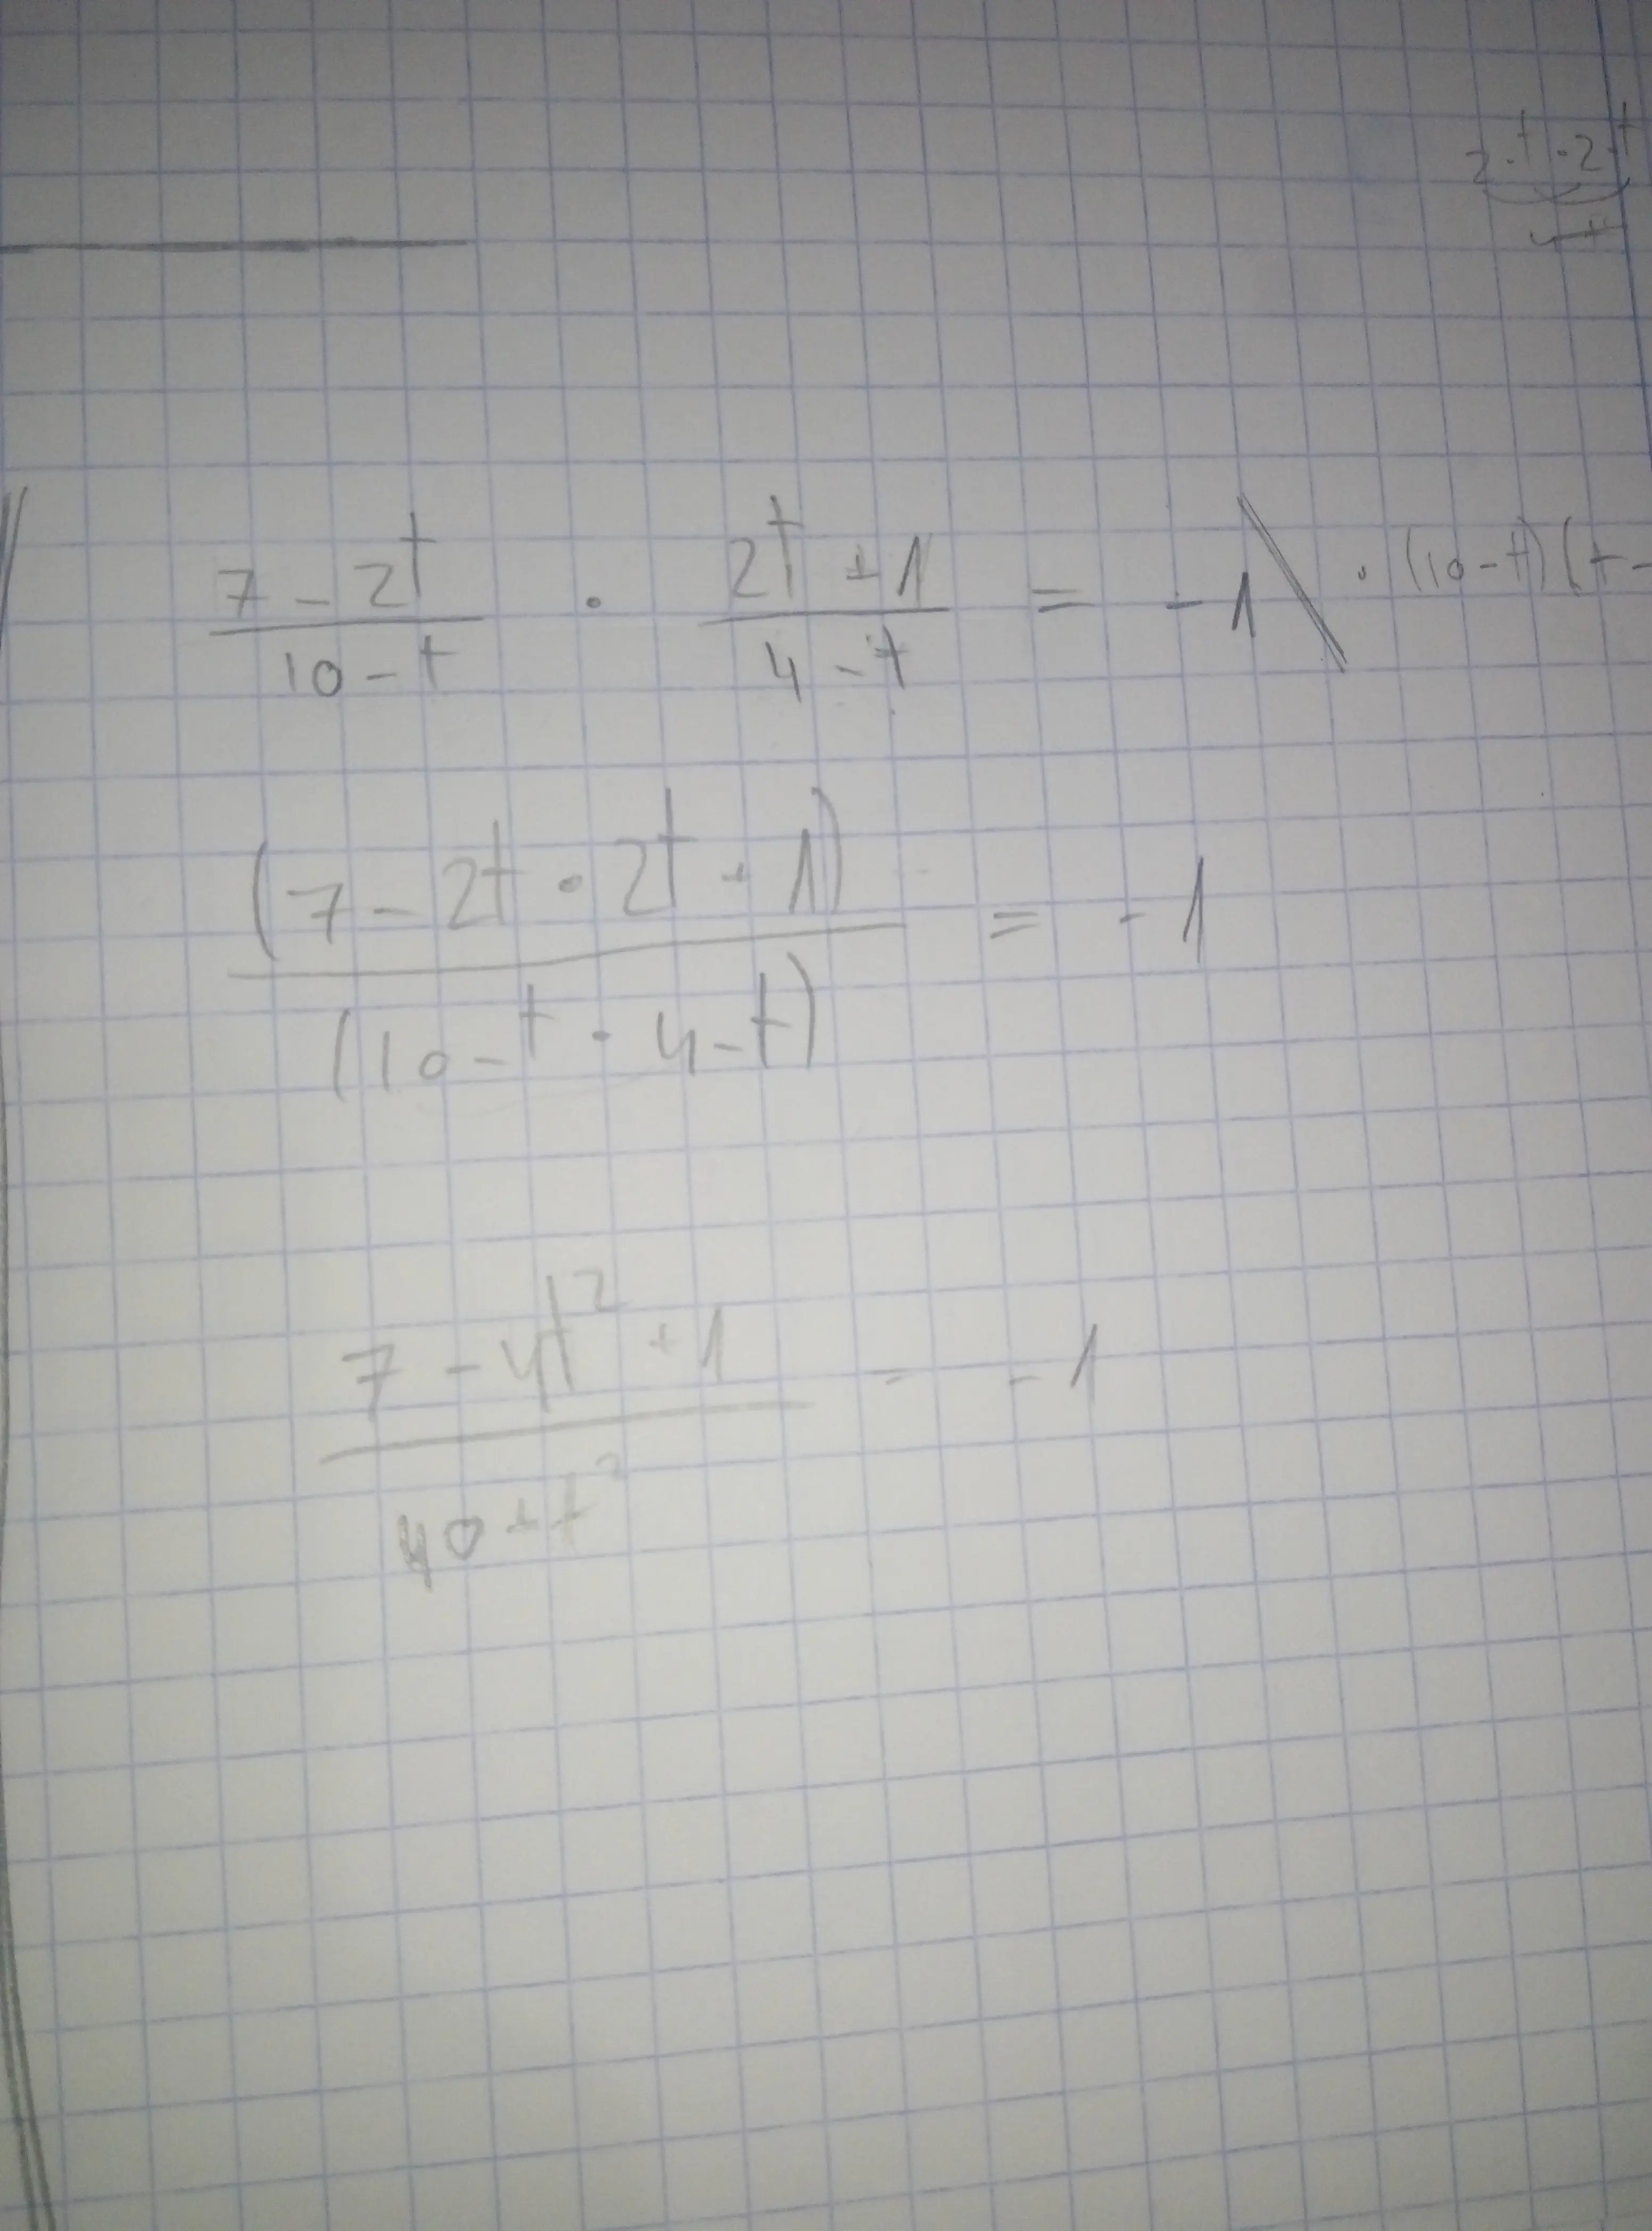 2·t·2·t
7-2t/10-t · 2t+1/4-t = -1 \ · (10-t)(t-
(7-2t·2t+1)/(10-t·4-t) = -1
7-4t²+1/40+t² = -1